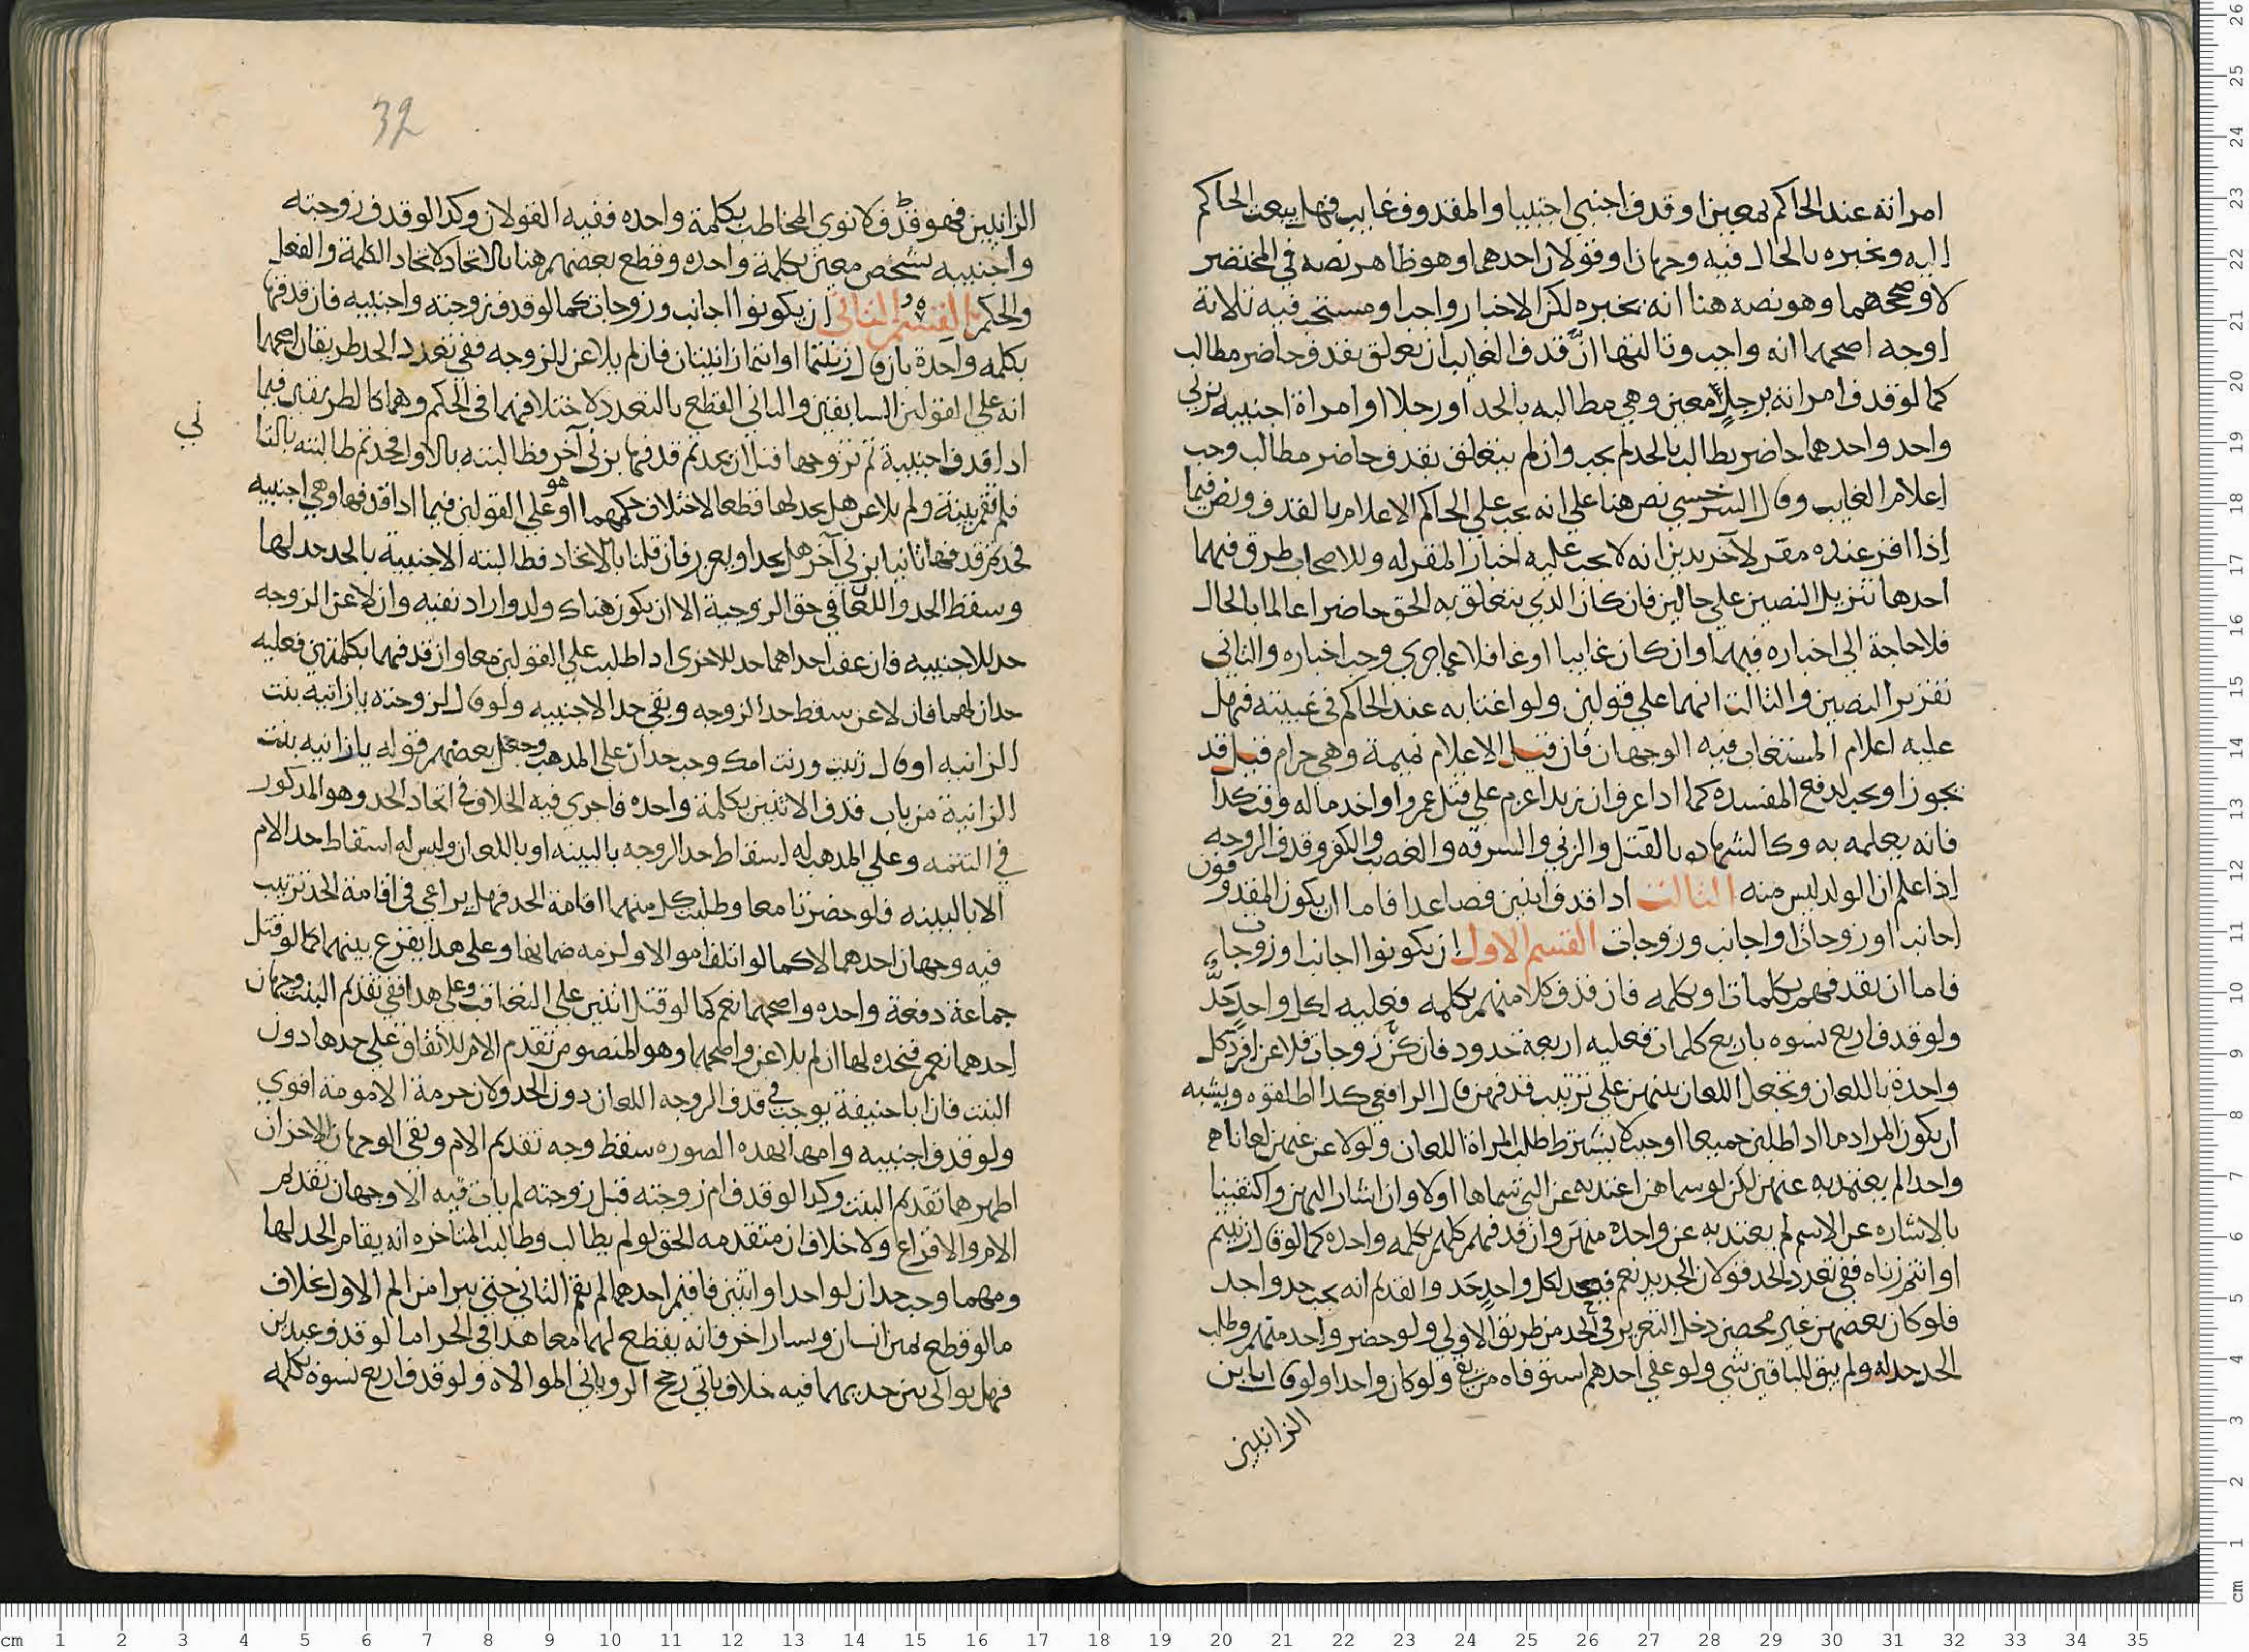 امراته عند الحاكم بمعين او قذف اجنبي اجنبيا والمقذوف غايب فهل يبعث الحاكم
اليه ويخبره بالحال فيه وجهان او قولان احدهما وهو ظاهر نصه في المختصر
لا وصححهما وهو نصه هنا انه يخبره لكن الاخبار واجب او مستحب فيه ثلاثة
اوجه اصحهما انه واجب وثالثها ان قذف الغايب ان تعلق بقذف حاضر مطالب
كما لو قذف امراته برجل معين وهي مطالبه بالحد او رجلا او امراة اجنبيه بزني
واحد واحدهما حاضر يطالب بالحد لم يجب وان لم يتعلق بقذف حاضر مطالب وجب
اعلام الغايب وقال السرخسي نص هنا علي انه يجب علي الحاكم الاعلام بالقذف ونص فيما
اذا اقر عنده مقر لاخر بدين انه لا يجب عليه اخبار المقر له وللاصحاب طرق فيهما
احدها تنزيل النصين علي حالين فان كان الذي يتعلق به الحق حاضرا عالما بالحال
فلا حاجة الي اخباره فيهما وان كان غايبا او غافلا عما جري وجب اخباره والثاني
تقرير النصين والثالث انهما علي قولين ولو اغتابه عند الحاكم في غيبته فهل
عليه اعلام المستغاب فيه الوجهان فان قيل الاعلام نميمة وهي حرام قيل قد
يجوز او يجب لدفع المفسده كما اذا عرف ان زيدا عزم علي قتل عمرو او اخذ ماله وقت كذا
فانه يعلمه به وكالشهاده بالقتل والزني والسرقه والغصب والكفر وقذف الزوجه
اذا علم ان الولد ليس منه الثالث اذا قذف اثنين فصاعدا فاما ان يكون المقذوفون
اجانب او زوجات او اجانب وزوجات القسم الاول ان يكونوا اجانب او زوجات
فاما ان يقذفهم بكلمات او بكلمه فان قذف كلا منهم بكلمه فعليه لكل واحد حد
ولو قذف اربع نسوه باربع كلمات فعليه اربعة حدود فان كن زوجات فلاعن افرد كل
واحدة باللعان ويجعل اللعان بينهن علي ترتيب قذفهن قال الرافعي كذا اطلقوه ويشبه
ان يكون المراد ما اذا طلبن جميعا او حيث لا يشترط طلب المراة اللعان ولو لاعن عنهن لعانا
واحدا لم يعتد به عنهن لكن لو سماهن اعتد به عن التي سماها اولا وان اشار اليهن واكتفينا
بالاشاره عن الاسم لم يعتد به عن واحدة منهن وان قذفهم كلهم بكلمه واحده كما لو قال زنيتم
او انتم زناه ففي تعدد الحد قولان الجديد نعم فيجد لكل واحد حد والقديم انه يجب حد واحد
فلو كان بعضهن غير محصن دخل التعزير في الحد من طريق الاولي ولو حضر واحد منهم وطلب
الحد حد له ولم يبق للباقين شي ولو عفي احدهم استوفاه من بقي ولو كان واحدا ولو قال يا ابن
الزانيين
32
الزانيين فهو قذف لابوي المخاطب بكلمة واحده ففيه القولان وكذا لو قذف زوجته
واجنبيه بشخص معين بكلمة واحده وقطع بعضهم هنا بالاتحاد لاتحاد الكلمة والفعل
والحكم القسم الثاني ان يكونوا اجانب وزوجات كما لو قذف زوجته واجنبيه فان قذفهما
بكلمه واحدة بان قال زنيتما او انتما زانيتان فان لم يلاعن للزوجه ففي تعدد الحد طريقان اصحهما
انه علي القولين السابقين والثاني القطع بالتعدد لاختلافهما في الحكم وهما كالطريقين فيما
اذا قذف اجنبية ثم تزوجها قبل ان يحد ثم قذفها بزني آخر فطالبته بالاول فحد ثم طالبته بالثا
ني
فلم يقم بينة ولم يلاعن هل يحد لها قطعا لاختلاف حكمهما او هو علي القولين فيما اذا قذفها وهي اجنبيه
فحد ثم قذفها ثانيا بزني آخر هل يحد او يعزر فان قلنا بالاتحاد فطالبته الاجنبية بالحد حد لها
وسقط الحد واللعان في حق الزوجية الا ان يكون هناك ولد واراد نفيه وان لاعن الزوجه
حد للاجنبيه فان عفت احداهما حد للاخري اذا طلبت علي القولين معا وان قذفهما بكلمتين فعليه
حدان لهما فان لاعن سقط حد الزوجه وبقي حد الاجنبيه ولو قال لزوجته يا زانيه بنت
الزانيه او قال زنيت وزنت امك وجب حدان علي المذهب وجعل بعضهم قوله يا زانيه بنت
الزانية من باب قذف الاثنين بكلمة واحده فاجري فيه الخلاف في اتحاد الحد وهو المذكور
في التتمه وعلي المذهب له اسقاط حد الزوجه بالبينه او باللعان وليس له اسقاط حد الام
الا بالبينه فلو حضرتا معا وطلبت كل منهما اقامة الحد فهل يراعي في اقامة الحد ترتيب
فيه وجهان احدهما لا كما لو اتلف اموالا ولزمه ضمانها وعلي هذا يقرع بينهما كما لو قتل
جماعة دفعة واحده واصحهما نعم كما لو قتل اثنين علي التعاقب وعلي هذا ففي تقديم البنت وجهان
احدهما نعم فيحد لها ان لم يلاعن واصحهما وهو المنصوص تقدم الام للاتفاق علي حدها دون
البنت فان ابا حنيفة يوجب في قذف الزوجه اللعان دون الحد ولان حرمة الامومة اقوي
ولو قذف اجنبيه وامها بهذه الصوره سقط وجه تقديم الام وبقي الوجهان الاخران
اظهرهما تقديم البنت وكذا لو قذف ام زوجته قبل زوجته لم يات فيه الا وجهان تقديم
الام والاقراع ولا خلاف ان متقدمه الحق لو لم يطالب وطالبت المتاخره انه يقام الحد لها
ومهما وجب حدان لواحد او اثنين فاقيم احدهما لم يقم الثاني حتي يبرا من الم الاول بخلاف
ما لو قطع يمين انسان ويسار اخر فانه يقطع لهما معا هذا في الحر اما لو قذف عبد بن
فهل يوالي بين حديهما فيه خلاف ياتي رجح الروياني الموالاة ولو قذف اربع نسوة بكلمه